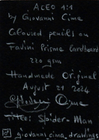 ALEO 414
by Giovanni Cima
Coloured pencils on
Favini Prisma Cardboard
220 gsm
Handmade Original
August 24 2024
Title: Spider-Man
giovanni_cima_drawings